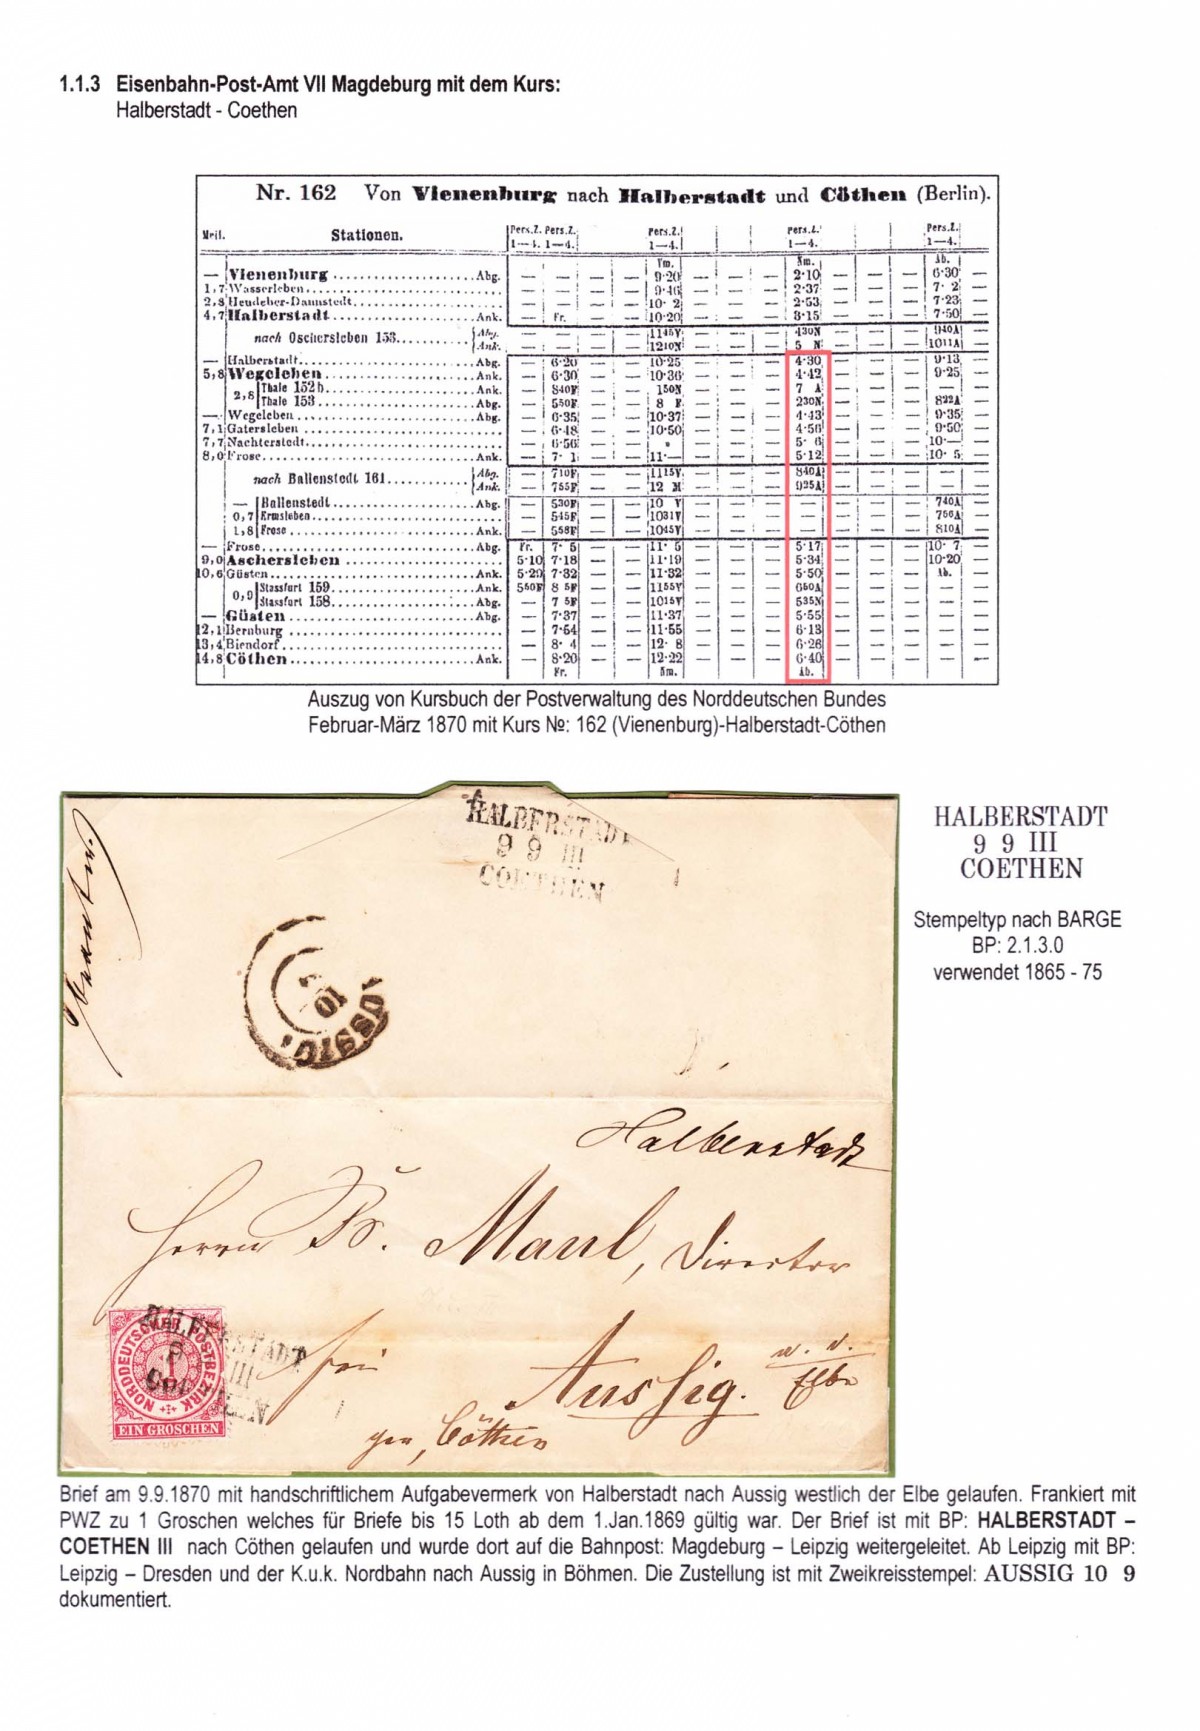 1.1.3 Eisenbahn-Post-Amt VII Magdeburg mit dem Kurs:
Halberstadt - Coethen
Nr. 162 Von Vienenburg nach Halberstadt und Cöthen (Berlin).
Meil. Stationen. Pers.Z. Pers.Z. Pers.Z. Pers.Z. Pers.Z.
1—4. 1—4. 1—4. 1—4. 1—4.
Vm. Nm. Ab.
— Vienenburg Abg. — — — 9·20 — — 2·10 — — 6·30 —
1,7 Wasserleben — — — 9·46 — — 2·37 — — 7· 2 —
2,8 Heudeber-Dannstedt — — — 10· 2 — — 2·53 — — 7·23 —
4,7 Halberstadt Ank. — Fr. — 10·20 — — 3·15 — — 7·50 —
nach Oschersleben 153 Abg. — — — 1145V — — 430N — — 940A —
Ank. — — — 1210N — — 5 N — — 1011A —
— Halberstadt Abg. — 6·20 — 10·25 — — 4·30 — — 9·13 —
5,8 Wegeleben Ank. — 6·30 — 10·36 — — 4·42 — — 9·25 —
2,8 Thale 152b Ank. — 840F — 150N — — 7 A — — — —
Thale 153 Abg. — 550F — 8 F — — 230N — — 822A —
— Wegeleben Abg. — 6·35 — 10·37 — — 4·43 — — 9·35 —
7,1 Gatersleben — 6·48 — 10·50 — — 4·56 — — 9·50 —
7,7 Nachterstedt — 6·56 — * — — 5· 6 — — 10·— —
8,0 Frose Ank. — 7· 1 — 11·— — — 5·12 — — 10· 5 —
nach Ballenstedt 161 Abg. — 710F — 1115V — — 840A — — — —
Ank. — 755F — 12 M — — 925A — — — —
— Ballenstedt Abg. — 530F — 10 V — — — — — 740A —
0,7 Ermsleben — 545F — 1031V — — — — — 756A —
1,8 Frose Ank. — 558F — 1045V — — — — — 810A —
— Frose Abg. Fr. 7· 5 — 11· 5 — — 5·17 — — 10· 7 —
9,0 Aschersleben 5·10 7·18 — 11·19 — — 5·34 — — 10·20 —
10,6 Güsten Ank. 5·29 7·32 — 11·32 — — 5·50 — — Ab. —
0,9 Stassfurt 159 Ank. 550F 8 5F — 1155V — — 650A — — — —
Stassfurt 158 Abg. — 7 5F — 1015V — — 535N — — — —
— Güsten Abg. — 7·37 — 11·37 — — 5·55 — — — —
12,1 Bernburg — 7·54 — 11·55 — — 6·13 — — — —
13,4 Biendorf — 8· 4 — 12· 8 — — 6·26 — — — —
14,8 Cöthen Ank. — 8·20 — 12·22 — — 6·40 — — — —
Fr. Nm. Ab.
Auszug von Kursbuch der Postverwaltung des Norddeutschen Bundes
Februar-März 1870 mit Kurs №: 162 (Vienenburg)-Halberstadt-Cöthen
HALBERSTADT
9 9 III
COETHEN
HALBERSTADT
9 9 III
COETHEN
Stempeltyp nach BARGE
BP: 2.1.3.0
verwendet 1865 - 75
AUSSIG
10
Halberstadt
Herrn B. Maul, Director
HALBERSTADT
9 III
COETHEN
NORDDEUTSCHER POSTBEZIRK
1
EIN GROSCHEN
Aussig.
Elbe
Cöthen
Brief am 9.9.1870 mit handschriftlichem Aufgabevermerk von Halberstadt nach Aussig westlich der Elbe gelaufen. Frankiert mit
PWZ zu 1 Groschen welches für Briefe bis 15 Loth ab dem 1.Jan.1869 gültig war. Der Brief ist mit BP: HALBERSTADT –
COETHEN III nach Cöthen gelaufen und wurde dort auf die Bahnpost: Magdeburg – Leipzig weitergeleitet. Ab Leipzig mit BP:
Leipzig – Dresden und der K.u.k. Nordbahn nach Aussig in Böhmen. Die Zustellung ist mit Zweikreisstempel: AUSSIG 10 9
dokumentiert.